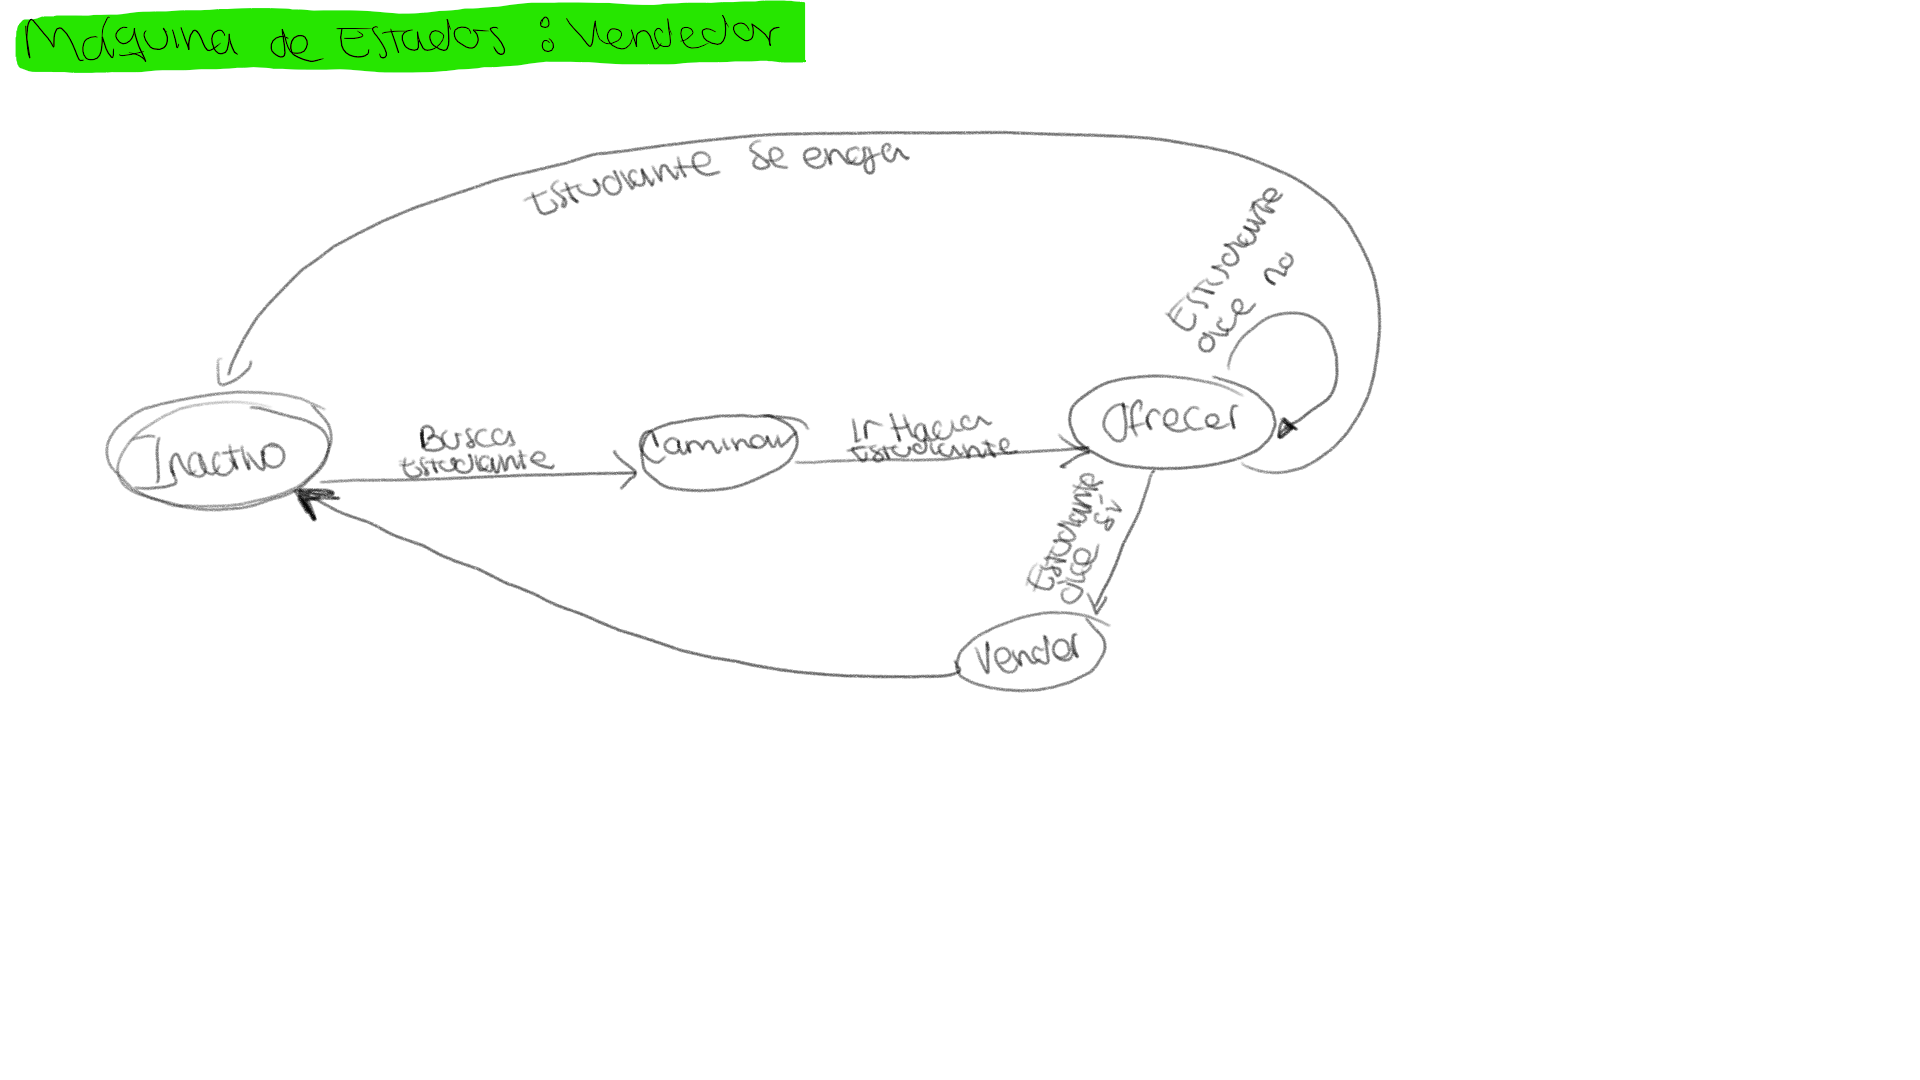 Máquina de Estados : Vendedor
Estudiante se enoja
Estudiante
dice no
Inactivo
Busca
Estudiante
Caminar
Ir Hacia
Estudiante
Ofrecer
Estudiante
dice si
Vender